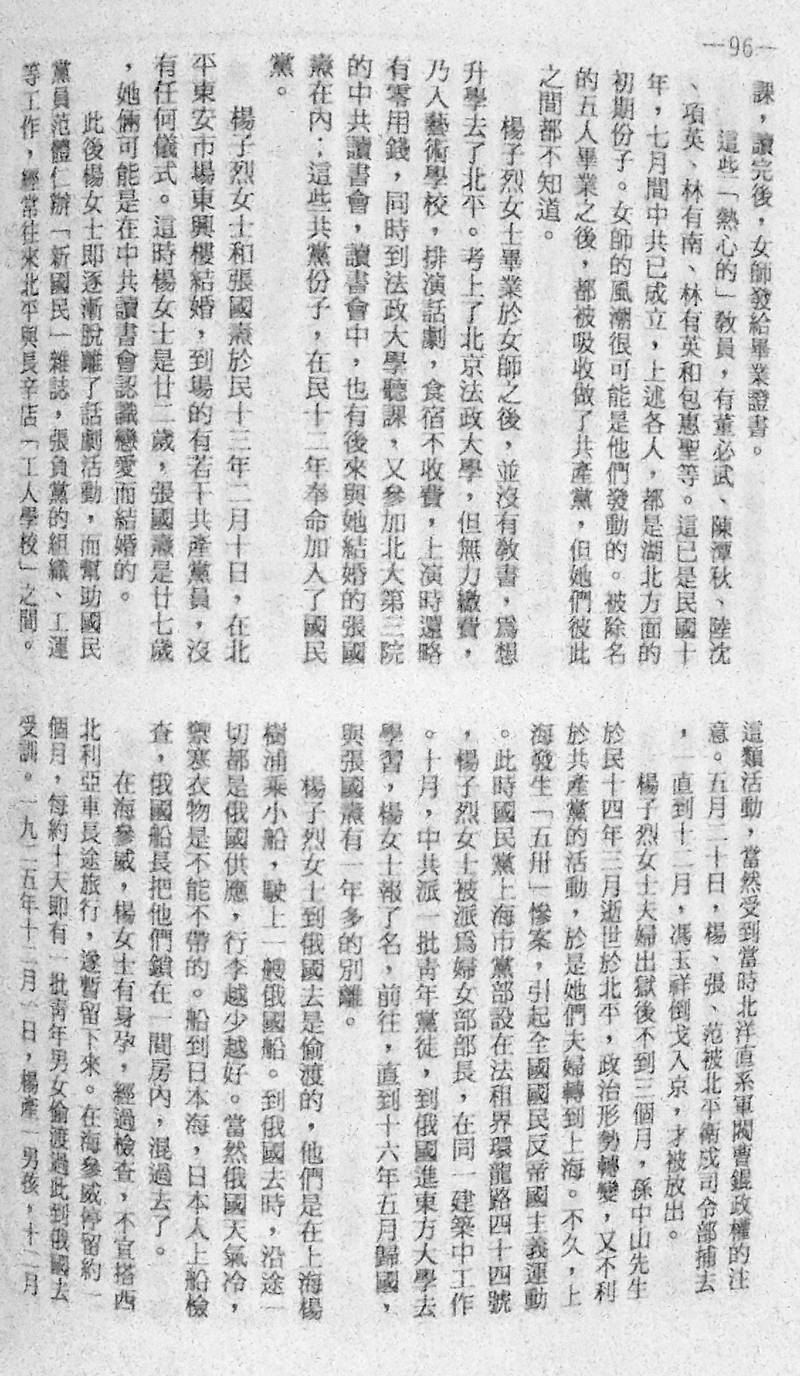 —96—
課，讀完後，女師發給畢業證書。
這些「熱心的」教員，有董必武、陳潭秋、陸沈
、項英、林有南、林有英和包惠聖等。這已是民國十
年，七月間中共已成立，上述各人，都是湖北方面的
初期份子。女師的風潮很可能是他們發動的。被除名
的五人畢業之後，都被吸收做了共產黨，但她們彼此
之間都不知道。
楊子烈女士畢業於女師之後，並沒有教書，爲想
升學去了北平。考上了北京法政大學，但無力繳費，
乃入藝術學校，排演話劇，食宿不收費，上演時還略
有零用錢，同時到法政大學聽課，又參加北大第三院
的中共讀書會，讀書會中，也有後來與她結婚的張國
燾在內；這些共黨份子，在民十二年奉命加入了國民
黨。
楊子烈女士和張國燾於民十三年二月十日，在北
平東安市場東興樓結婚，到場的有若干共產黨員，沒
有任何儀式。這時楊女士是廿二歲，張國燾是廿七歲
，她倆可能是在中共讀書會認識戀愛而結婚的。
此後楊女士即逐漸脫離了話劇活動，而幫助國民
黨員范體仁辦「新國民」雜誌，張負黨的組織、工運
等工作，經常往來北平與長辛店「工人學校」之間。
這類活動，當然受到當時北洋直系軍閥曹錕政權的注
意。五月二十日，楊、張、范被北平衛戍司令部捕去
，一直到十二月，馮玉祥倒戈入京，才被放出。
楊子烈女士夫婦出獄後不到三個月，孫中山先生
於民十四年三月逝世於北平，政治形勢轉變，又不利
於共產黨的活動，於是她們夫婦轉到上海。不久，上
海發生「五卅」慘案，引起全國國民反帝國主義運動
。此時國民黨上海市黨部設在法租界環龍路四十四號
，楊子烈女士被派爲婦女部部長，在同一建築中工作
。十月，中共派一批青年黨徒，到俄國進東方大學去
學習，楊女士報了名，前往，直到十六年五月歸國，
與張國燾有一年多的別離。
楊子烈女士到俄國去是偷渡的，他們是在上海楊
樹浦乘小船，駛上一艘俄國船。到俄國去時，沿途一
切都是俄國供應，行李越少越好。當然俄國天氣冷，
禦寒衣物是不能不帶的。船到日本海，日本人上船檢
查，俄國船長把他們鎖在一間房內，混過去了。
在海參威，楊女士有身孕，經過檢查，不宜搭西
北利亞車長途旅行，遂暫留下來。在海參威停留約一
個月，每約十天即有一批青年男女偷渡過此到俄國去
受訓。一九二五年十二月一日，楊產一男孩，十二月